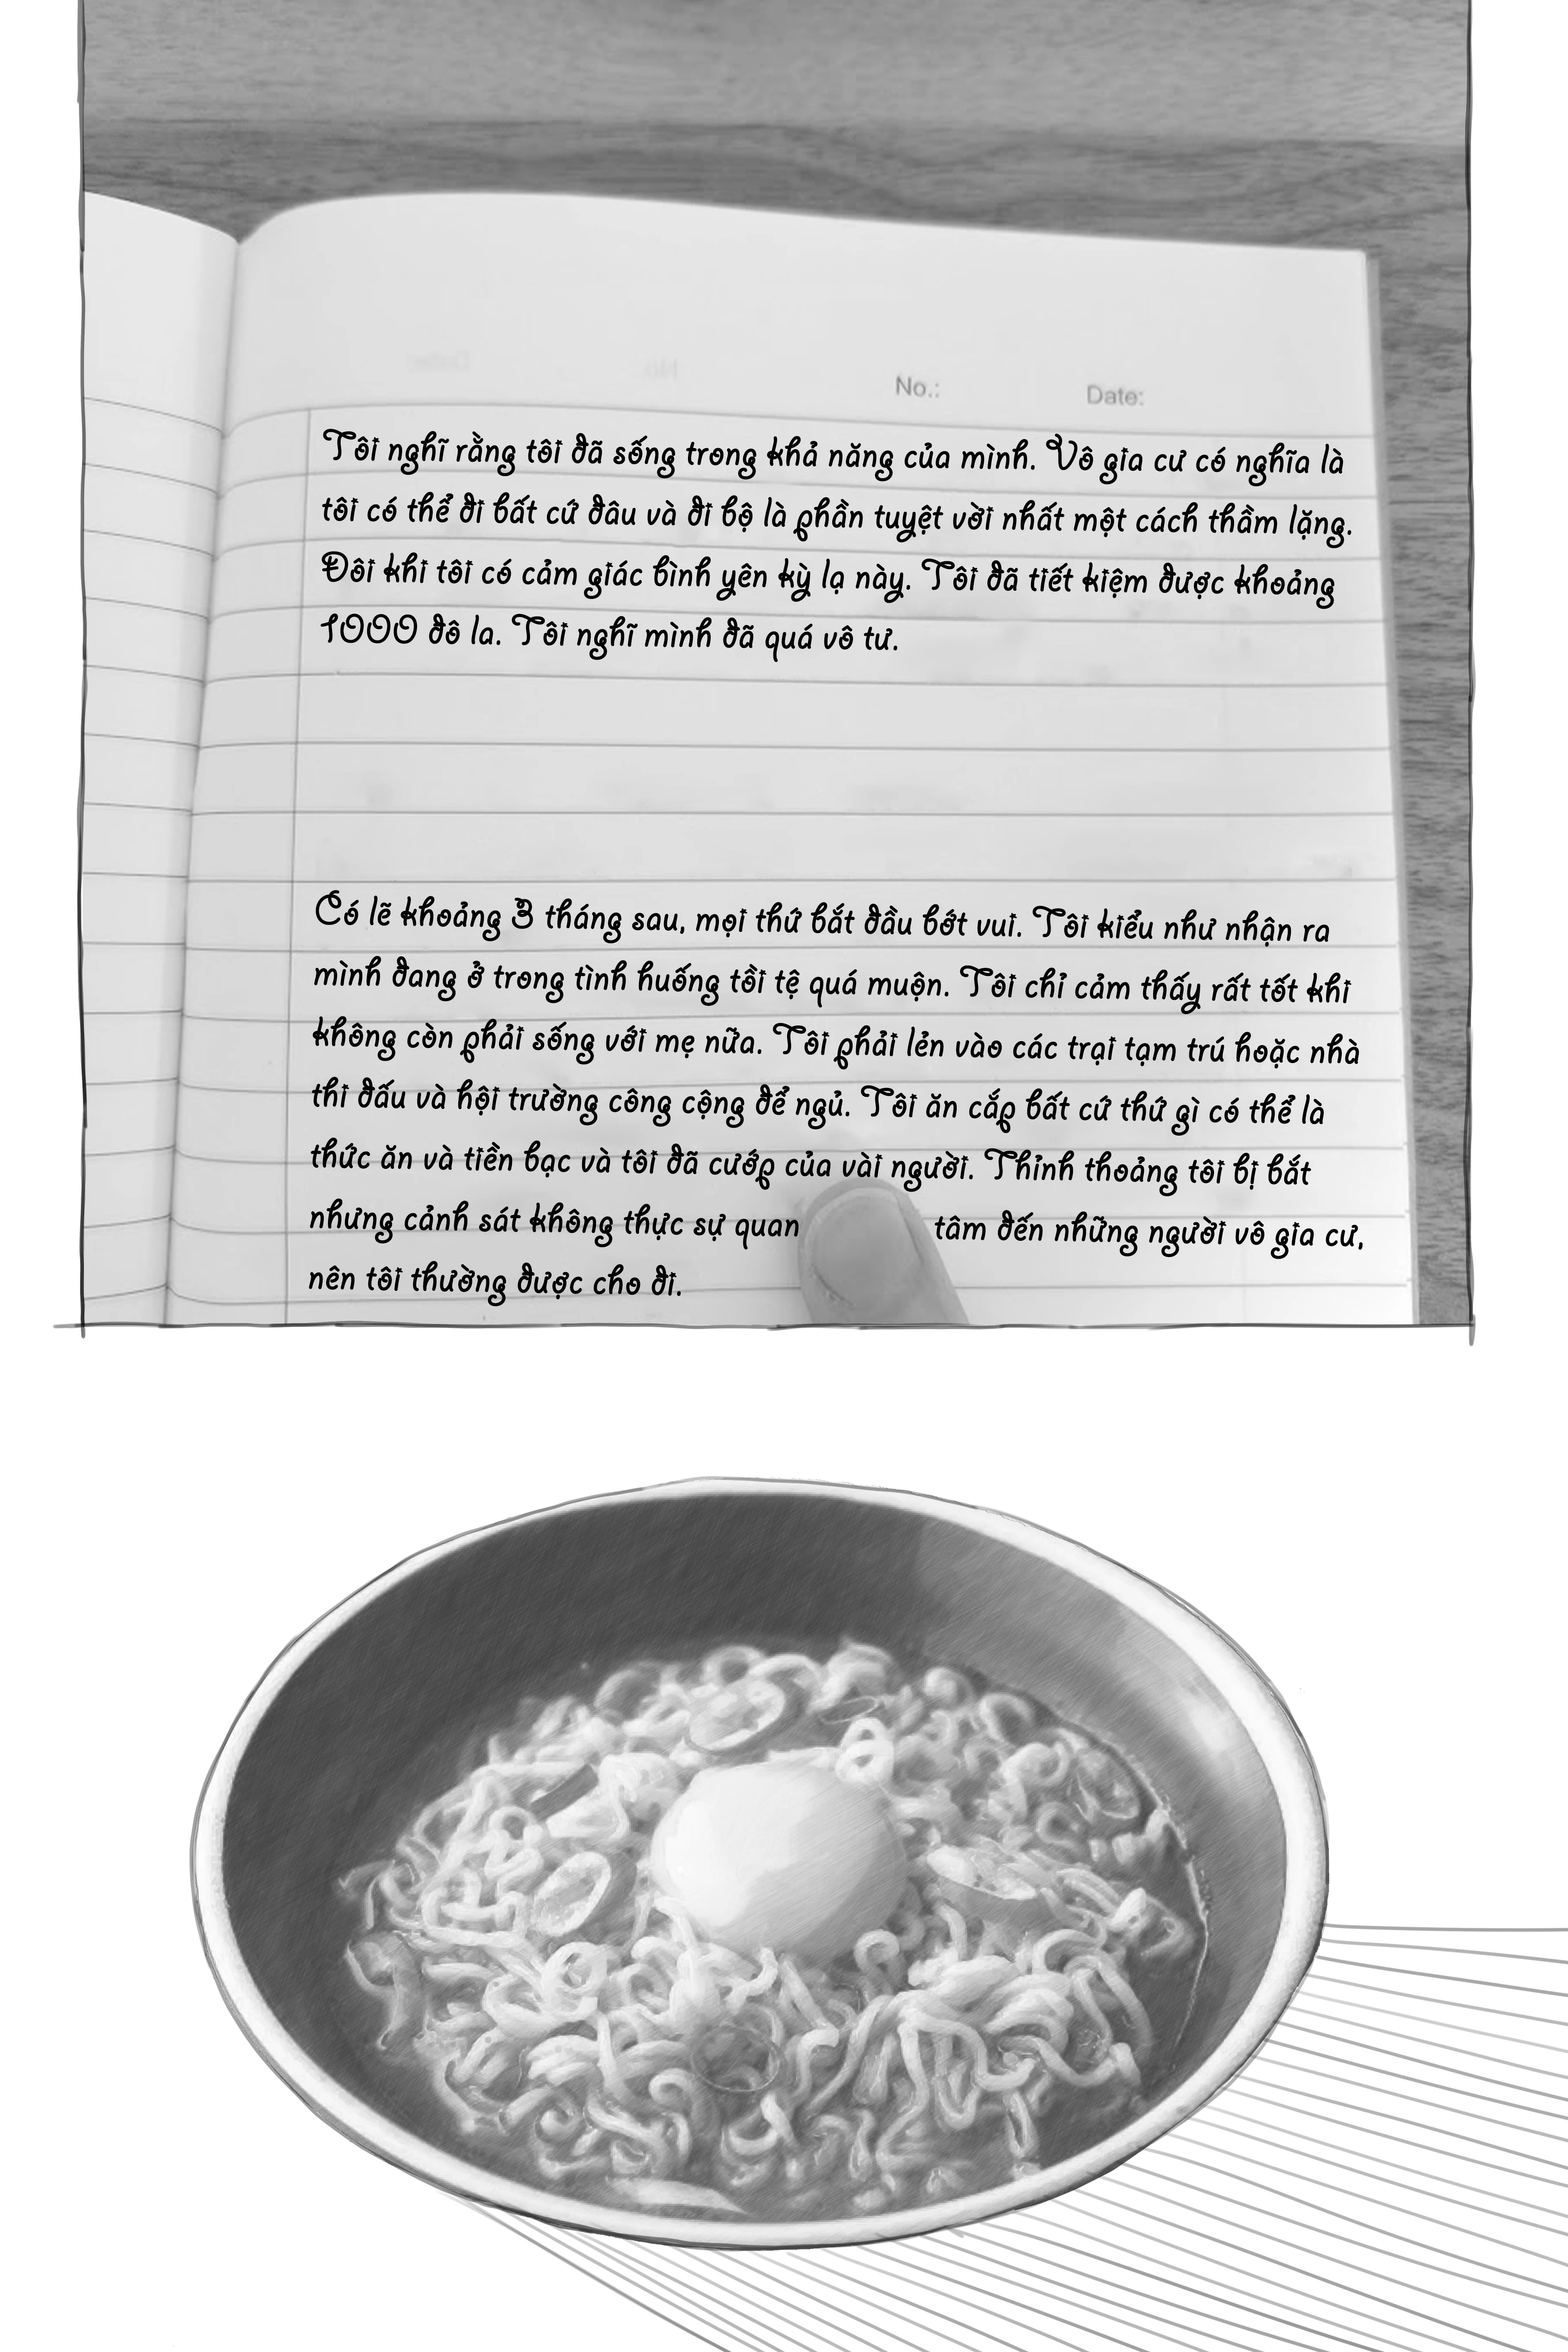 No.: Date:
Tôi nghĩ rằng tôi đã sống trong khả năng của mình. Vô gia cư có nghĩa là
tôi có thể đi bất cứ đâu và đi bộ là phần tuyệt vời nhất một cách thầm lặng.
Đôi khi tôi có cảm giác bình yên kỳ lạ này. Tôi đã tiết kiệm được khoảng
1000 đô la. Tôi nghĩ mình đã quá vô tư.
Có lẽ khoảng 3 tháng sau, mọi thứ bắt đầu bớt vui. Tôi kiểu như nhận ra
mình đang ở trong tình huống tồi tệ quá muộn. Tôi chỉ cảm thấy rất tốt khi
không còn phải sống với mẹ nữa. Tôi phải lẻn vào các trại tạm trú hoặc nhà
thi đấu và hội trường công cộng để ngủ. Tôi ăn cắp bất cứ thứ gì có thể là
thức ăn và tiền bạc và tôi đã cướp của vài người. Thỉnh thoảng tôi bị bắt
nhưng cảnh sát không thực sự quan tâm đến những người vô gia cư,
nên tôi thường được cho đi.